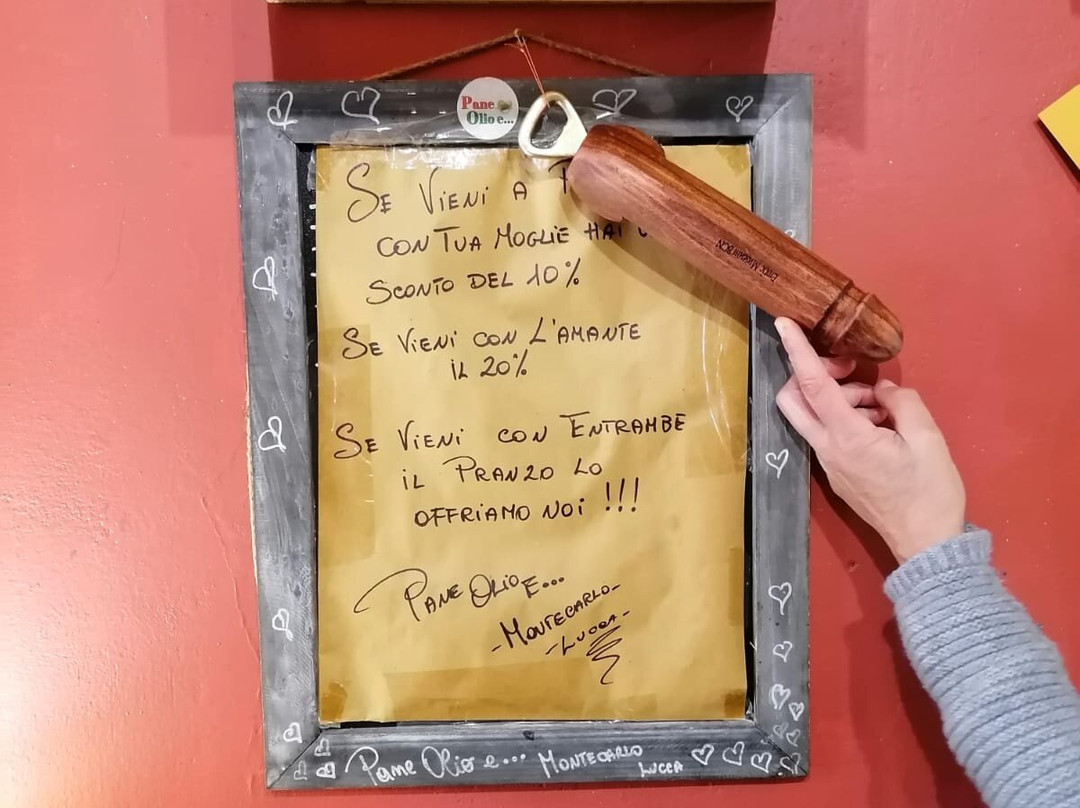 Pane
Olio e...
SE VIENI A
CON TUA MOGLIE HAI
SCONTO DEL 10%
SE VIENI CON L'AMANTE
IL 20%
SE VIENI CON ENTRAMBE
IL PRANZO LO
OFFRIAMO NOI !!!
PANE OLIO E...
-MONTECARLO-
-LUCCA-
Pane Olio e... MONTECARLO
LUCCA